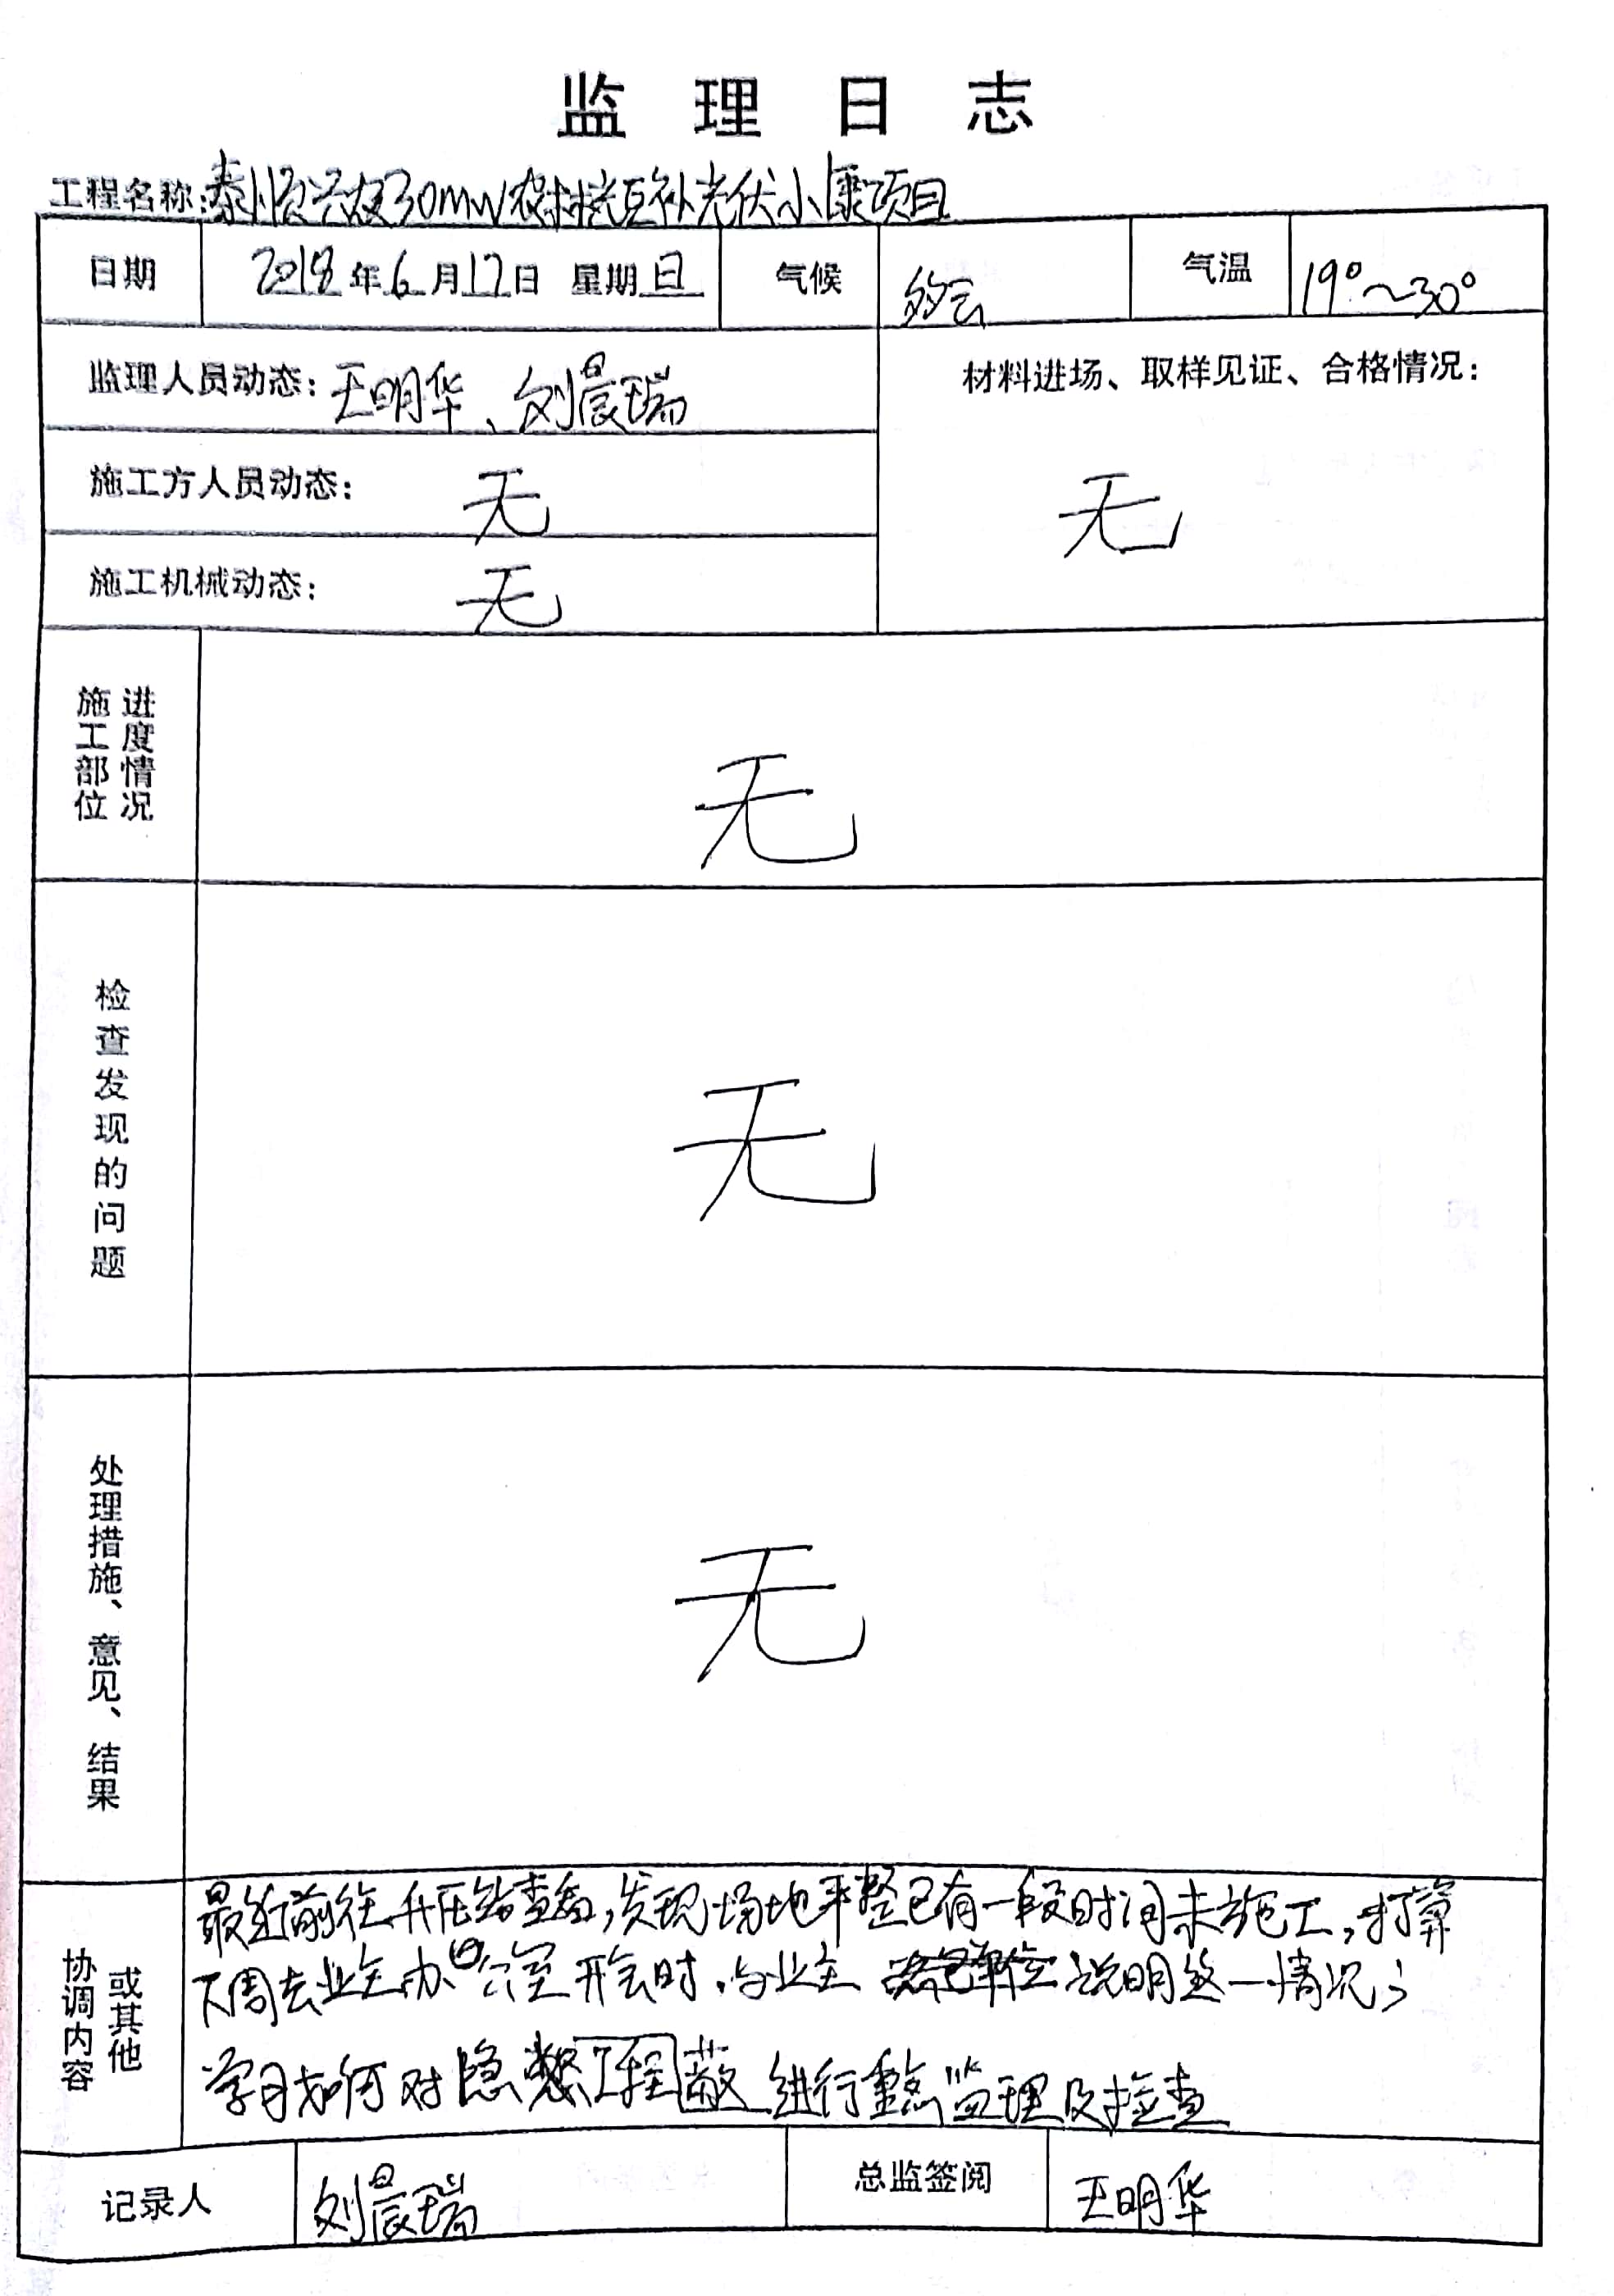 监理日志
工程名称:泰顺兴30MW农林光互补光伏小康项目
日期 2018年6月17日 星期日 气候 多云 气温 19°~30°
监理人员动态:王明华、刘晨瑞 材料进场、取样见证、合格情况:
施工方人员动态: 无 无
施工机械动态: 无
施工部位 进度情况 无
检查发现的问题 无
处理措施、意见、结果 无
协调内容 或其他
最近前往升压站查看,发现场地平整已有一段时间未施工,打算
下周去业主办公室开会时,与业主 说明这一情况;
学习如何对隐蔽工程进行 监理及检查
记录人 刘晨瑞 总监签阅 王明华